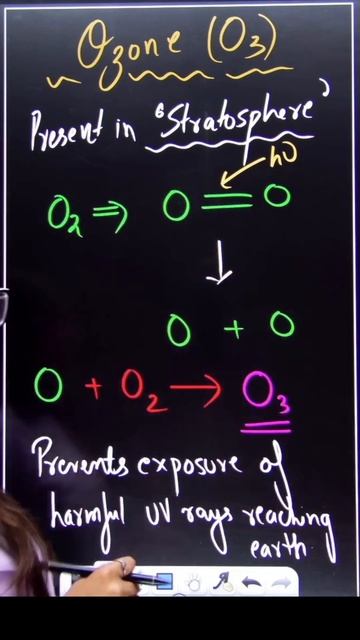 Ozone (O₃)
Present in "Stratosphere"
hν
O₂ ⇒ O = O
↓
O + O
O + O₂ → O₃
Prevents exposure of
harmful UV rays reaching
earth.